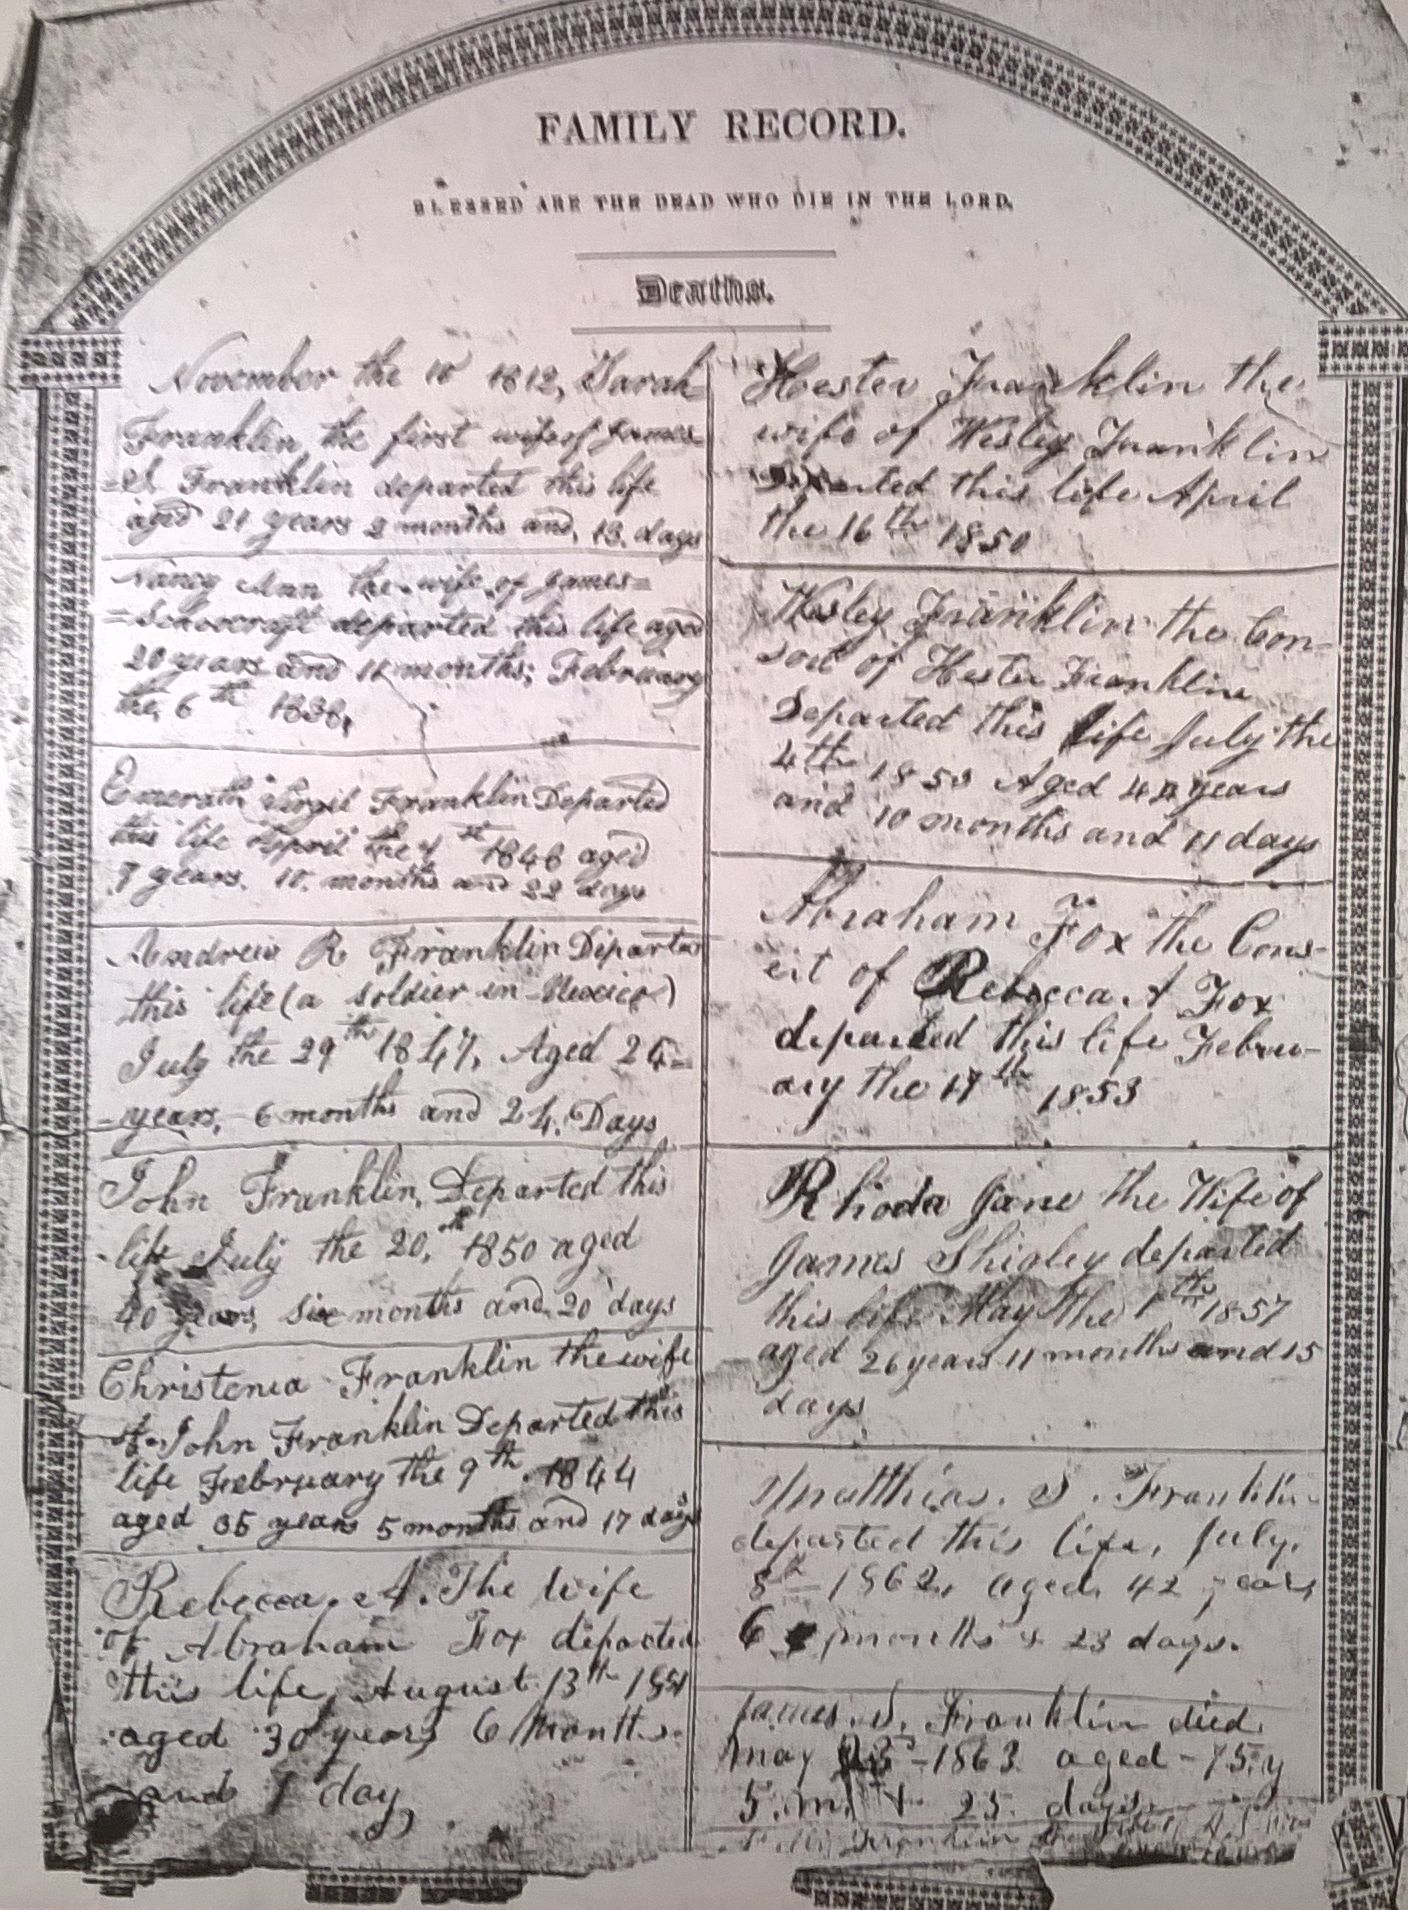 FAMILY RECORD.
BLESSED ARE THE DEAD WHO DIE IN THE LORD.
Deaths.
November the 10 1812, Sarah
Franklin the first wife of James
=S Franklin departed this life
aged 21 years 2 months and, 13. days
Nancy Ann the wife of James=
=Schoocraft departed this life aged
20 years and 11 months; February
the, 6th 1838,
Virgil Franklin Departed
this life April the 1st 1846 aged
7 years. 10. months and 22 days
Andrew R Franklin Departed
this life (a soldier in Mexico)
July the 29th 1847, Aged 24=
-years, 6 months and 24. Days
John Franklin, Departed this
life July the 20,th 1850 aged
40 years, six months and 20 days
Christenia Franklin the wife
of John Franklin Departed this
life February the 9th. 1844
aged 35 years 5 months and 17 days
Rebecca. A. The wife
of Abraham Fox departed
this life, August 13th 1851
aged 30 years 6 Months.
and 1 day,
Hester Franklin the
wife of Wesley Franklin
Departed this life April
the 16th 1850
Wesley Franklin the Con-
sort of Hester Franklin
Departed this life July the
4th 1853 Aged years
and 10 months and 11 days
Abraham Fox the Cons-
ort of Rebecca A Fox
departed this life Febru-
ary the 17th 1853
Rhoda Jane the Wife of
James Shigley departed
this life May the 1th 1857
aged 26 years 11 months and 15
days
Matthias. S. Franklin
departed this life, July,
8th 1862, aged, 42 years
6 months & 23 days.
James. S. Franklin died.
May 1863 aged - 75. y
5. m. & 25. days.
Franklin